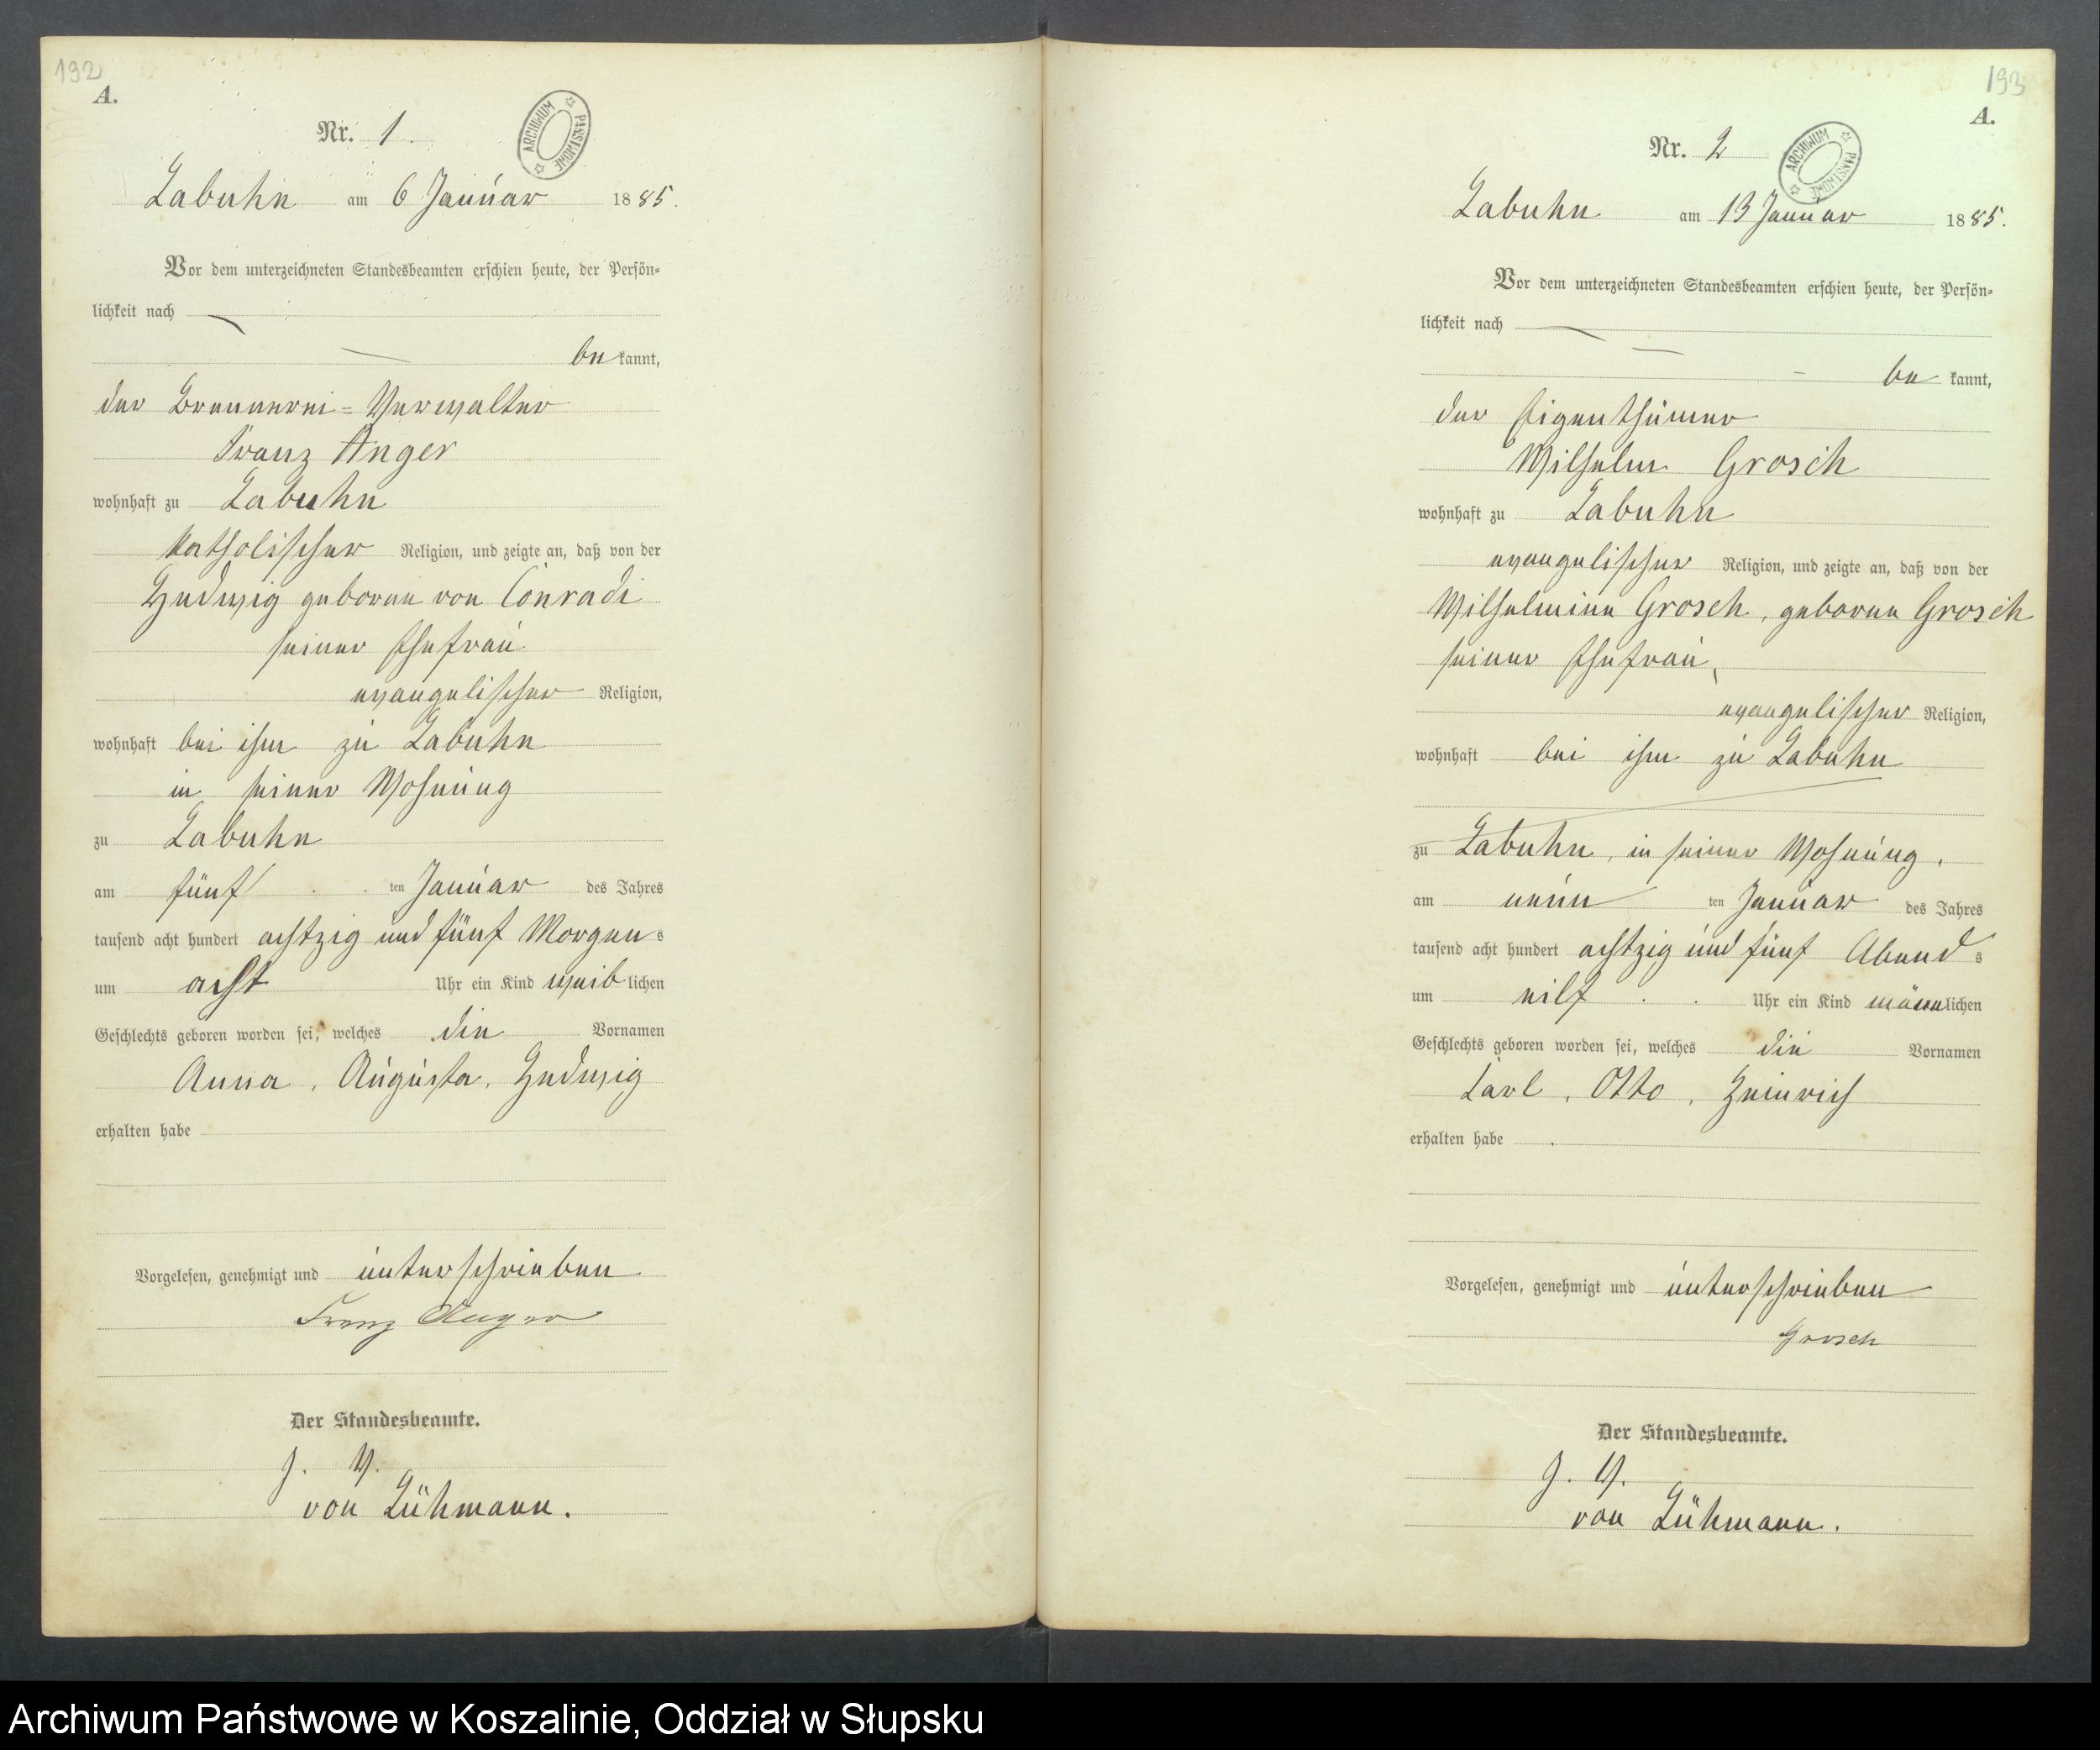 192
A.
Nr. 1.
ARCHIWUM PAŃSTWOWE
Labuhn am 6 Januar 1885.
Vor dem unterzeichneten Standesbeamten erschien heute, der Persön=
lichkeit nach
be kannt,
der Brennerei=Verwalter
Franz Anger
wohnhaft zu Labuhn
katholischer Religion, und zeigte an, daß von der
Hedwig geborene von Conradi
seiner Ehefrau
evangelischer Religion,
wohnhaft bei ihm zu Labuhn
in seiner Wohnung
zu Labuhn
am fünf ten Januar des Jahres
tausend acht hundert achtzig und fünf Morgen s
um acht Uhr ein Kind weib lichen
Geschlechts geboren worden sei, welches die Vornamen
Anna, Augusta, Hedwig
erhalten habe
Vorgelesen, genehmigt und unterschrieben
Franz Anger
Der Standesbeamte.
J. V.
von Lühmann.
193
A.
Nr. 2
ARCHIWUM PAŃSTWOWE
Labuhn am 13 Januar 1885.
Vor dem unterzeichneten Standesbeamten erschien heute, der Persön=
lichkeit nach
be kannt,
der Eigenthümer
Wilhelm Grosch
wohnhaft zu Labuhn
evangelischer Religion, und zeigte an, daß von der
Wilhelmine Grosch, geborene Grosch
seiner Ehefrau,
evangelischer Religion,
wohnhaft bei ihm zu Labuhn
zu Labuhn, in seiner Wohnung,
am neun ten Januar des Jahres
tausend acht hundert achtzig und fünf Abend s
um eilf Uhr ein Kind männ lichen
Geschlechts geboren worden sei, welches die Vornamen
Carl, Otto, Heinrich
erhalten habe
Vorgelesen, genehmigt und unterschrieben
Grosch
Der Standesbeamte.
J. V.
von Lühmann.
Archiwum Państwowe w Koszalinie, Oddział w Słupsku